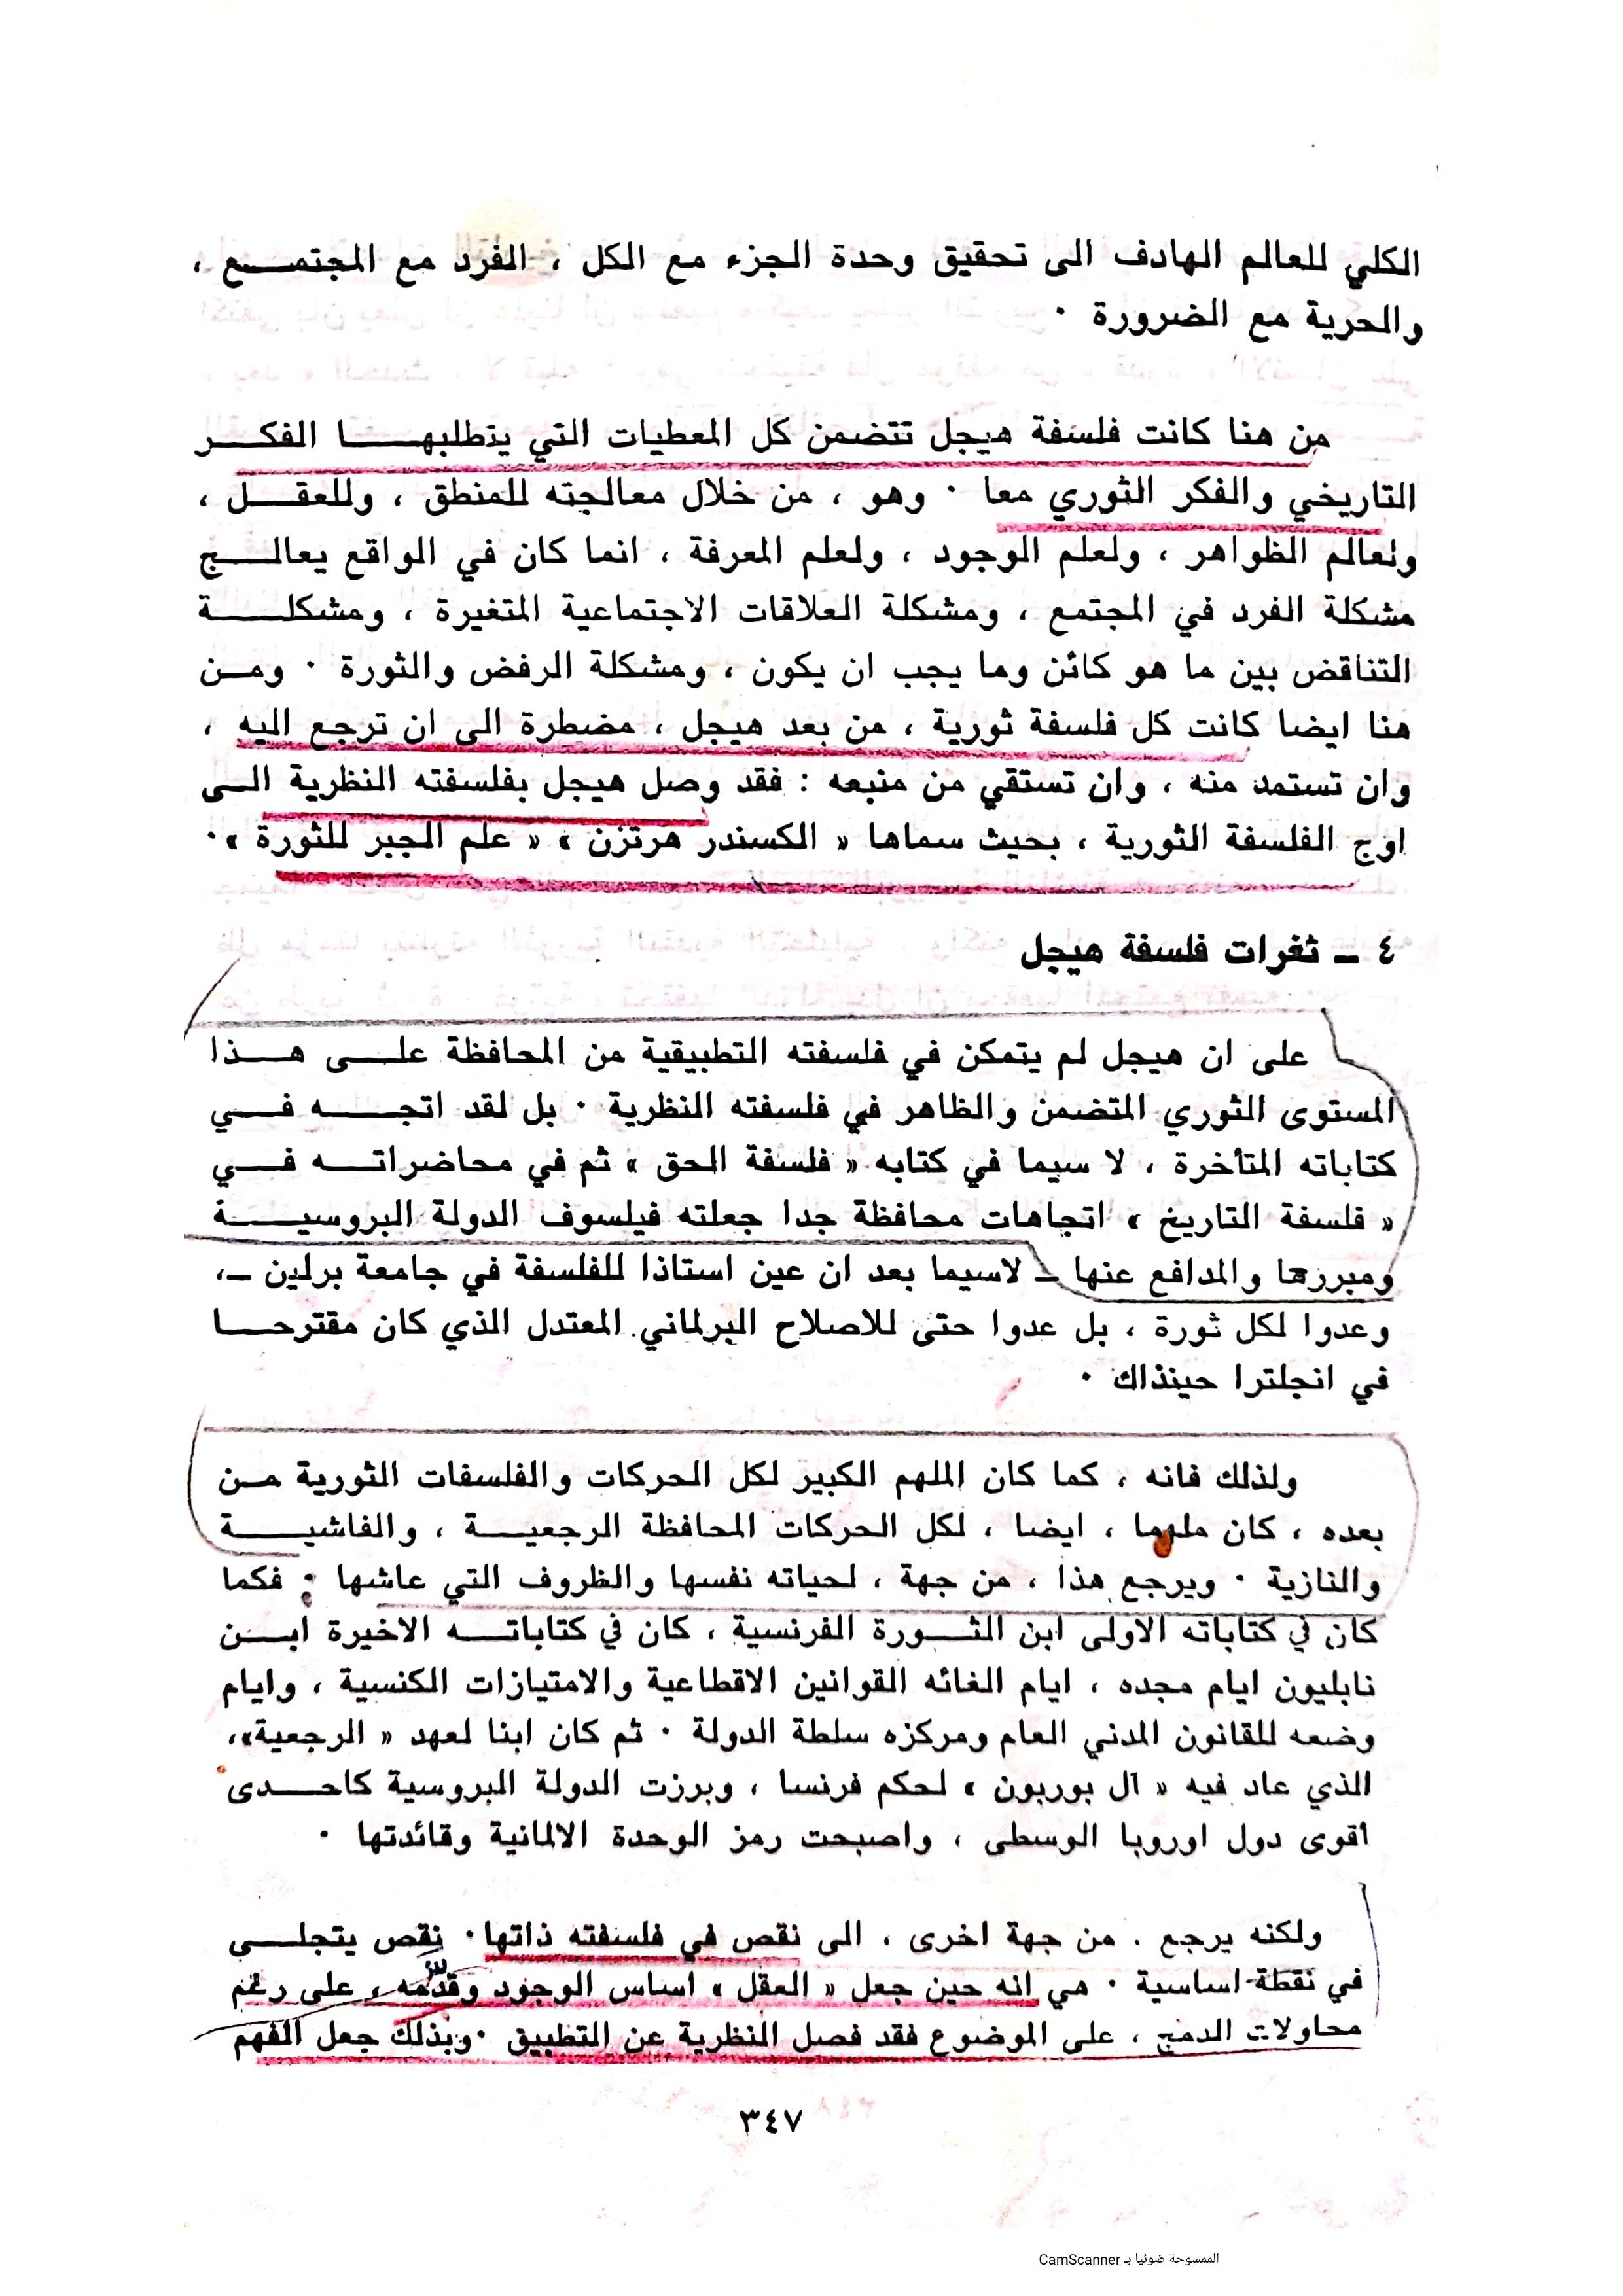 الكلي للعالم الهادف الى تحقيق وحدة الجزء مع الكل ، الفرد مع المجتمع ،
والحرية مع الضرورة ٠
من هنا كانت فلسفة هيجل تتضمن كل المعطيات التي يتطلبها الفكر
التاريخي والفكر الثوري معا ٠ وهو ، من خلال معالجته للمنطق ، وللعقل ،
ولعالم الظواهر ، ولعلم الوجود ، ولعلم المعرفة ، انما كان في الواقع يعالج
مشكلة الفرد في المجتمع ، ومشكلة العلاقات الاجتماعية المتغيرة ، ومشكلة
التناقض بين ما هو كائن وما يجب ان يكون ، ومشكلة الرفض والثورة ٠ ومن
هنا ايضا كانت كل فلسفة ثورية ، من بعد هيجل ، مضطرة الى ان ترجع اليه ،
وان تستمد منه ، وان تستقي من منبعه : فقد وصل هيجل بفلسفته النظرية الى
اوج الفلسفة الثورية ، بحيث سماها « الكسندر هرتزن » « علم الجبر للثورة » ٠
٤ ـ ثغرات فلسفة هيجل
على ان هيجل لم يتمكن في فلسفته التطبيقية من المحافظة على هذا
المستوى الثوري المتضمن والظاهر في فلسفته النظرية ٠ بل لقد اتجه في
كتاباته المتأخرة ، لا سيما في كتابه « فلسفة الحق » ثم في محاضراته في
« فلسفة التاريخ » اتجاهات محافظة جدا جعلته فيلسوف الدولة البروسية
ومبررها والمدافع عنها ـ لاسيما بعد ان عين استاذا للفلسفة في جامعة برلين ـ،
وعدوا لكل ثورة ، بل عدوا حتى للاصلاح البرلماني المعتدل الذي كان مقترحا
في انجلترا حينذاك ٠
ولذلك فانه ، كما كان الملهم الكبير لكل الحركات والفلسفات الثورية من
بعده ، كان ملهما ، ايضا ، لكل الحركات المحافظة الرجعية ، والفاشية
والنازية ٠ ويرجع هذا ، من جهة ، لحياته نفسها والظروف التي عاشها : فكما
كان في كتاباته الاولى ابن الثورة الفرنسية ، كان في كتاباته الاخيرة ابن
نابليون ايام مجده ، ايام الغائه القوانين الاقطاعية والامتيازات الكنسية ، وايام
وضعه للقانون المدني العام ومركزه سلطة الدولة ٠ ثم كان ابنا لعهد « الرجعية»،
الذي عاد فيه « آل بوربون » لحكم فرنسا ، وبرزت الدولة البروسية كاحدى
أقوى دول اوروبا الوسطى ، واصبحت رمز الوحدة الالمانية وقائدتها ٠
ولكنه يرجع . من جهة اخرى ، الى نقص في فلسفته ذاتها ٠ نقص يتجلى
في نقطة اساسية ٠ هي انه حين جعل « العقل » اساس الوجود وقدّمه ، على رغم
محاولات الدمج ، على الموضوع فقد فصل النظرية عن التطبيق ٠ وبذلك جعل الفهم
٣٤٧
الممسوحة ضوئيا بـ CamScanner